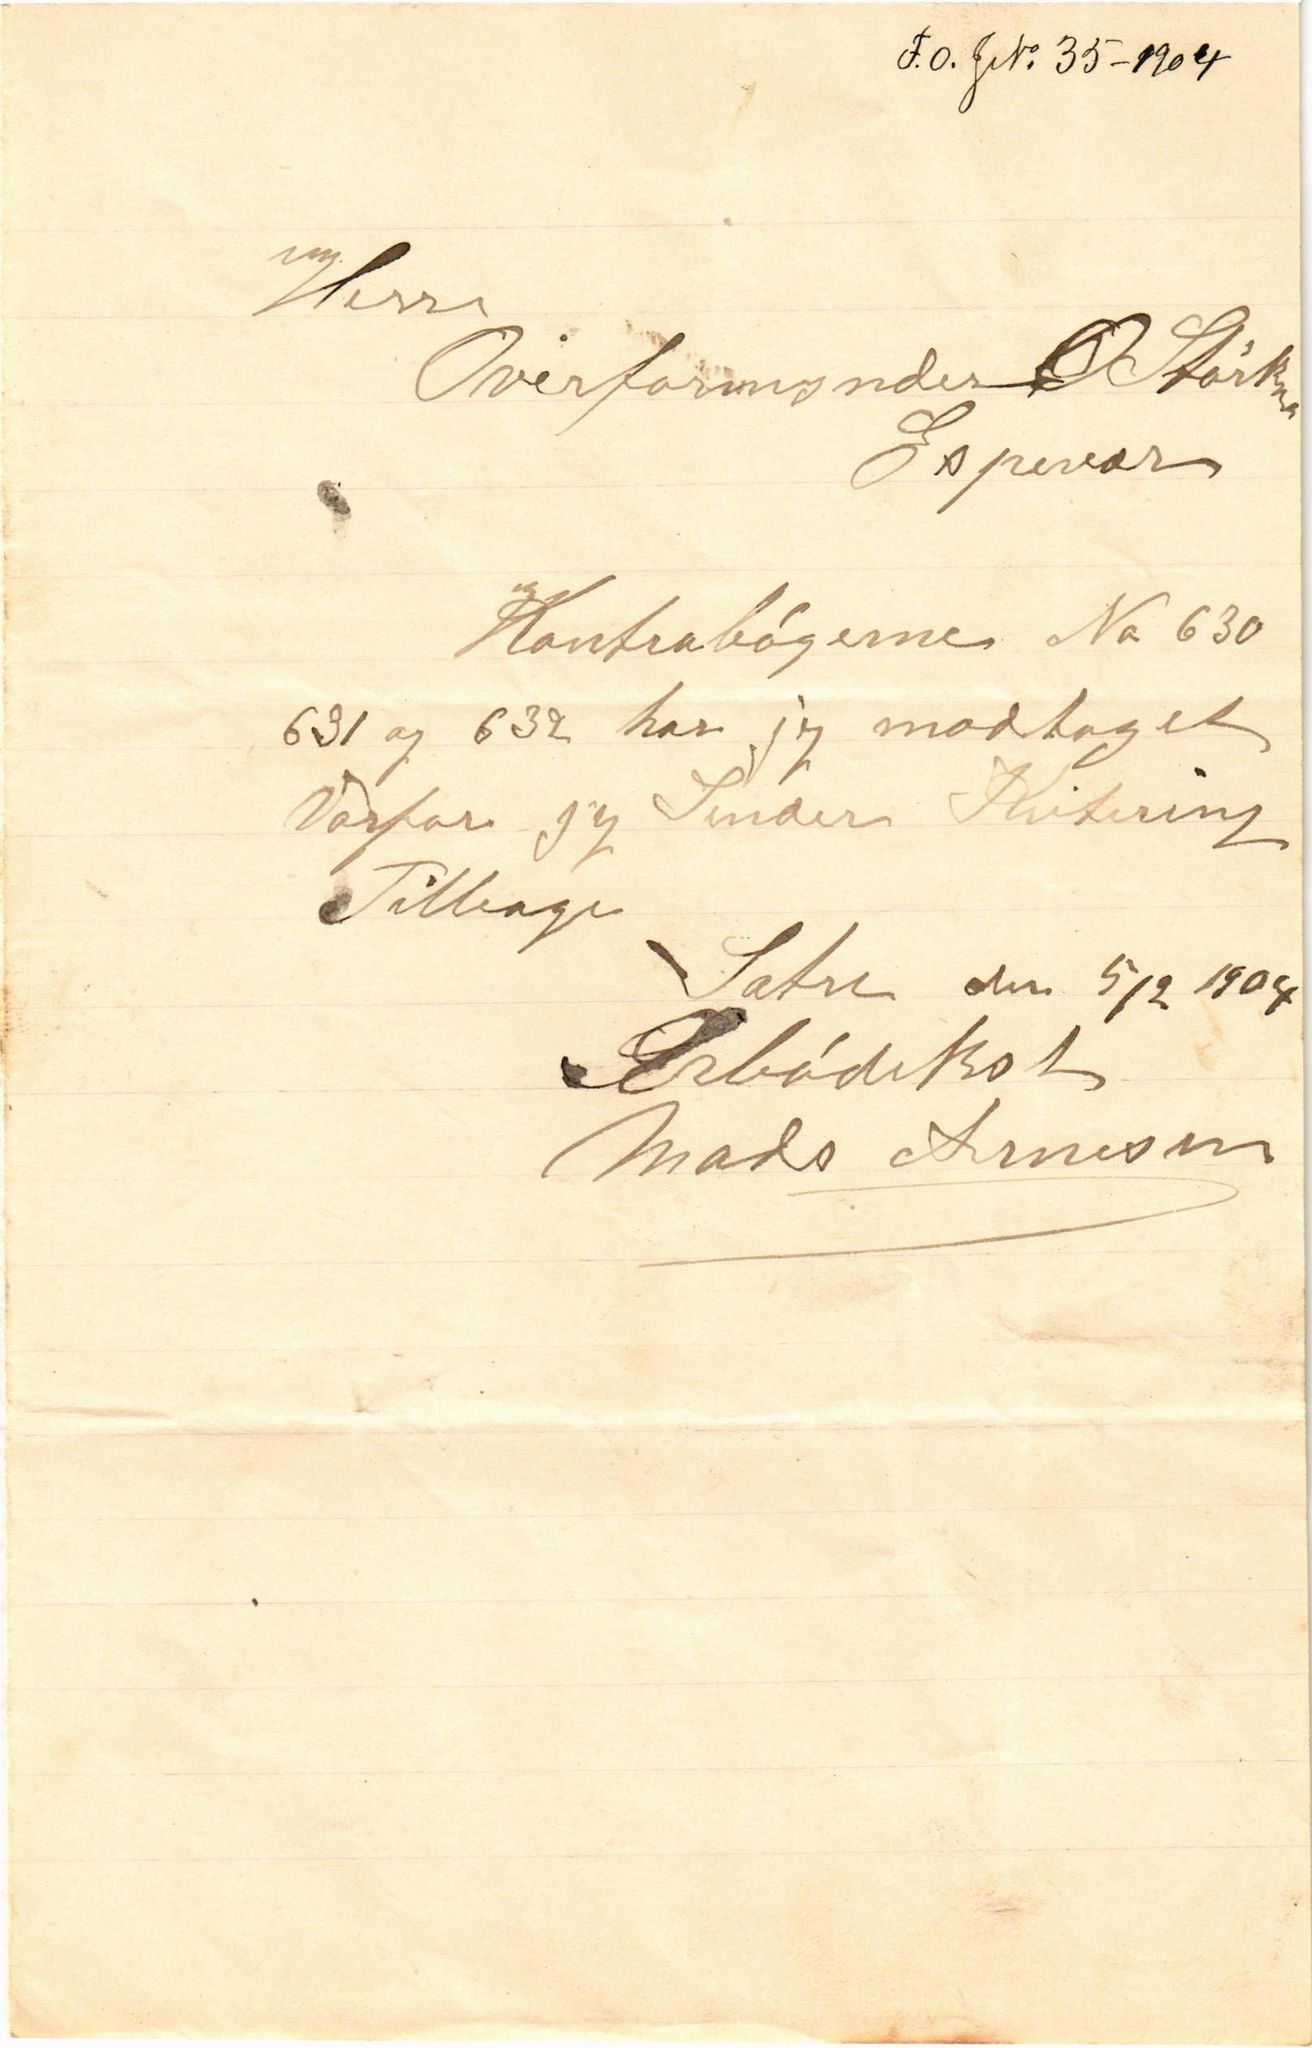 F.O. J№. 35-1904
Herr
Overformynder O Störksen
Espevær
Kontrabógerne No 630
631 og 632 har jeg modtaget
Vorfor jeg Sender Kvitering
Tilbage
Sætre den 5/2 1904
Ærbódikst
Mads Arnesen